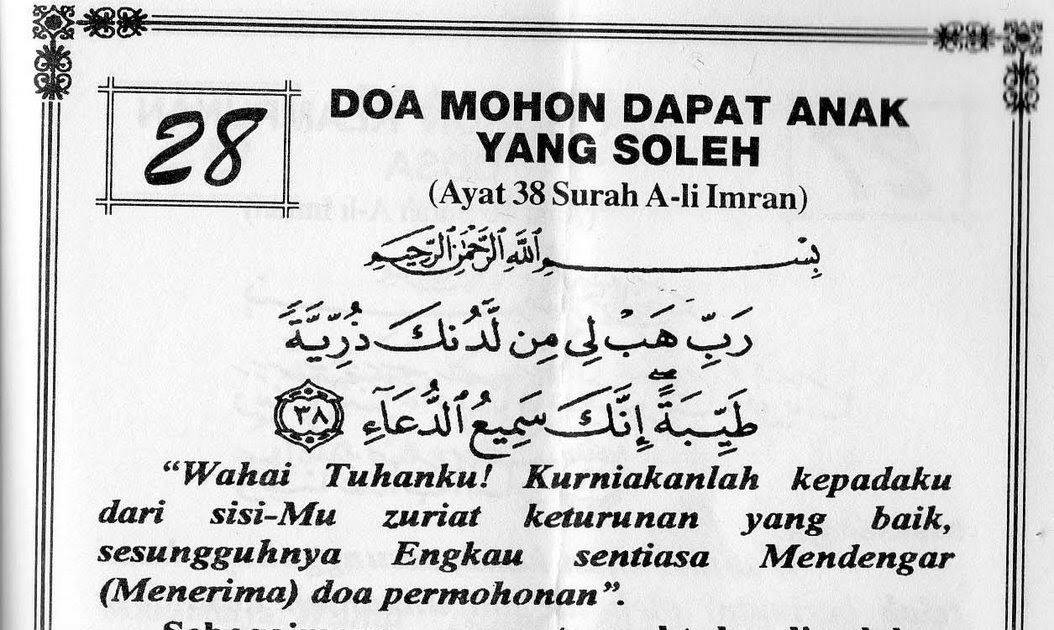 28
DOA MOHON DAPAT ANAK
YANG SOLEH
(Ayat 38 Surah A-li Imran)
بِسْمِ اللَّهِ الرَّحْمَٰنِ الرَّحِيمِ
رَبِّ هَبْ لِى مِن لَّدُنكَ ذُرِّيَّةً
طَيِّبَةً ۖ إِنَّكَ سَمِيعُ ٱلدُّعَآءِ ٣٨
“Wahai Tuhanku! Kurniakanlah kepadaku
dari sisi-Mu zuriat keturunan yang baik,
sesungguhnya Engkau sentiasa Mendengar
(Menerima) doa permohonan”.